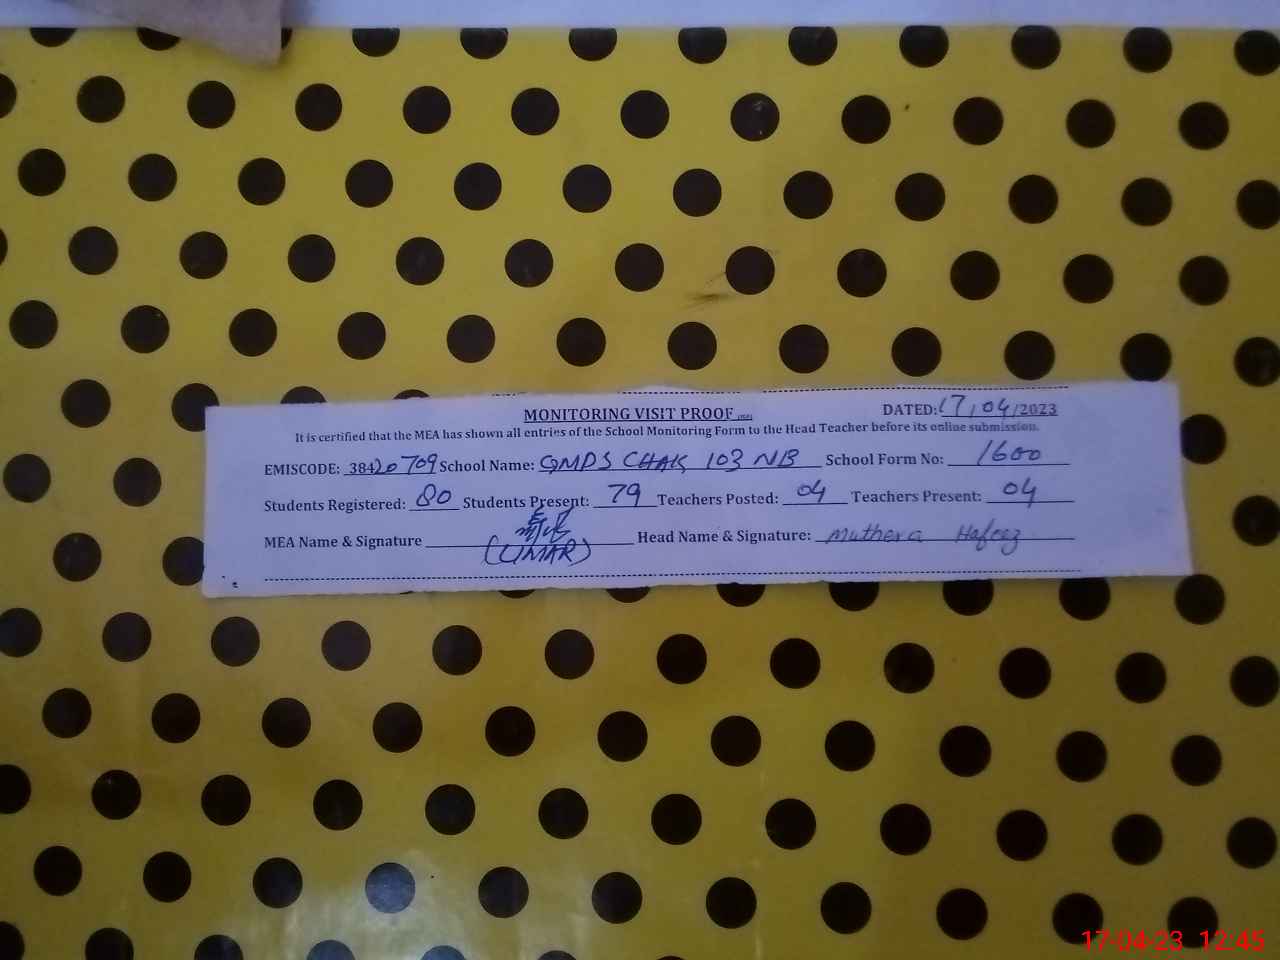 MONITORING VISIT PROOF DATED: 17/04/2023
It is certified that the MEA has shown all entries of the School Monitoring Form to the Head Teacher before its online submission.
EMISCODE: 38420709 School Name: GMPS CHAK 103 NB School Form No: 1600
Students Registered: 80 Students Present: 79 Teachers Posted: 04 Teachers Present: 04
MEA Name & Signature (UMAR) Head Name & Signature: Muthera Hafeez
17-04-23 12:45